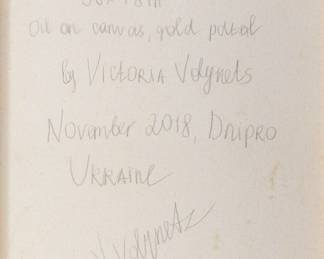 oil on canvas, gold
by Victoria Volynets
November 2018, Dnipro
Ukraine
V. Volynetz